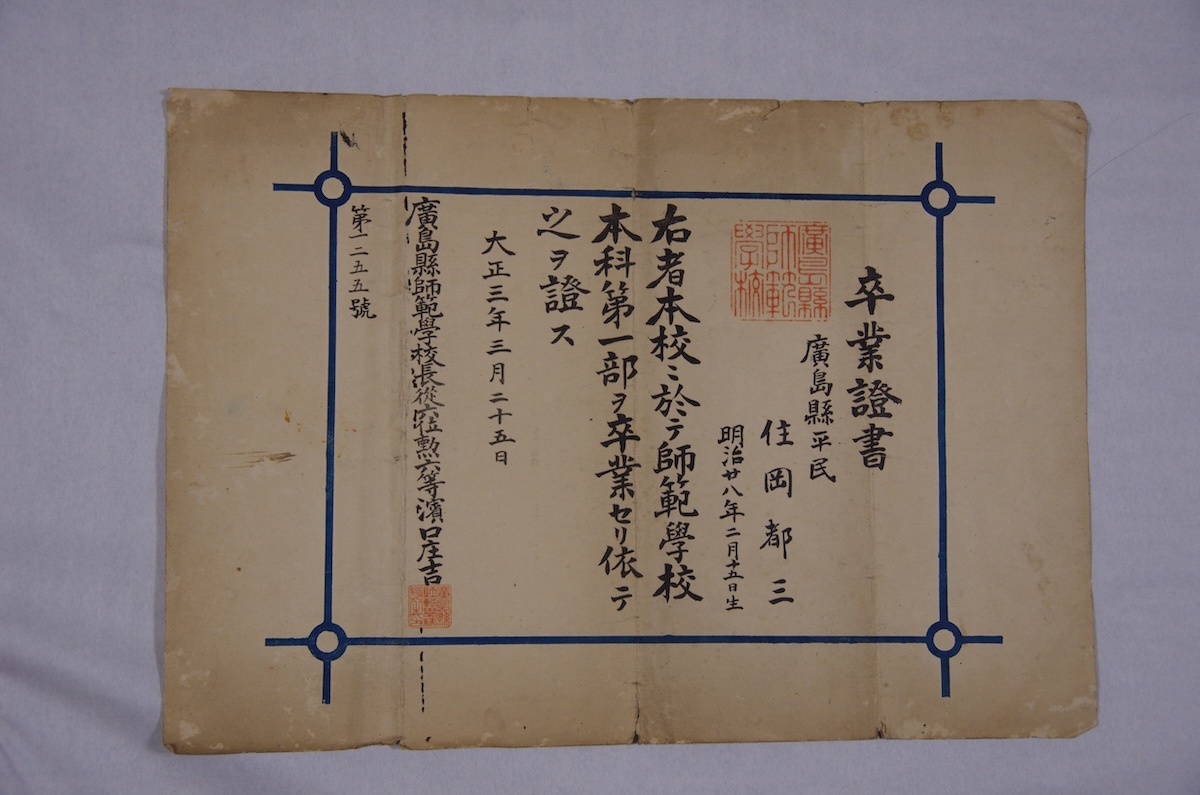 卒業證書
廣島縣師範學校
廣島縣平民
住岡都三
明治廿八年二月十五日生
右者本校ニ於テ師範學校
本科第一部ヲ卒業セリ依テ
之ヲ證ス
大正三年三月二十五日
廣島縣師範學校長從六位勲六等濱口庄吉
第一二五五號